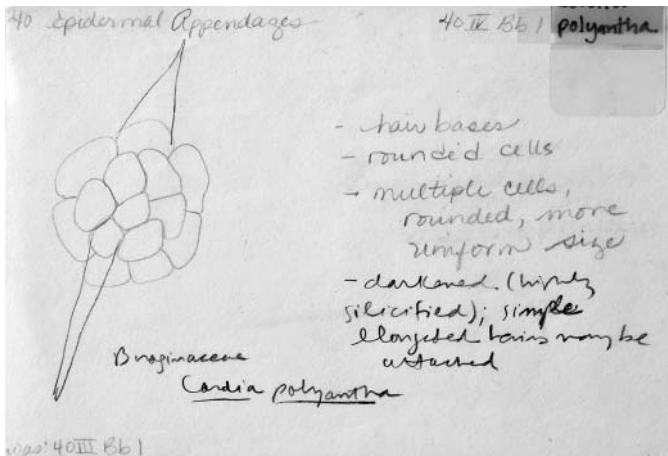 40 Epidermal Appendages
40 IV Bb 1
polyantha.
- hair bases
- rounded cells
- multiple cells,
rounded, more
uniform size
- darkened (highly
silicified); simple
elongated hairs may be
attached
Boraginaceae
Cordia polyantha
was: 40 III Bb 1